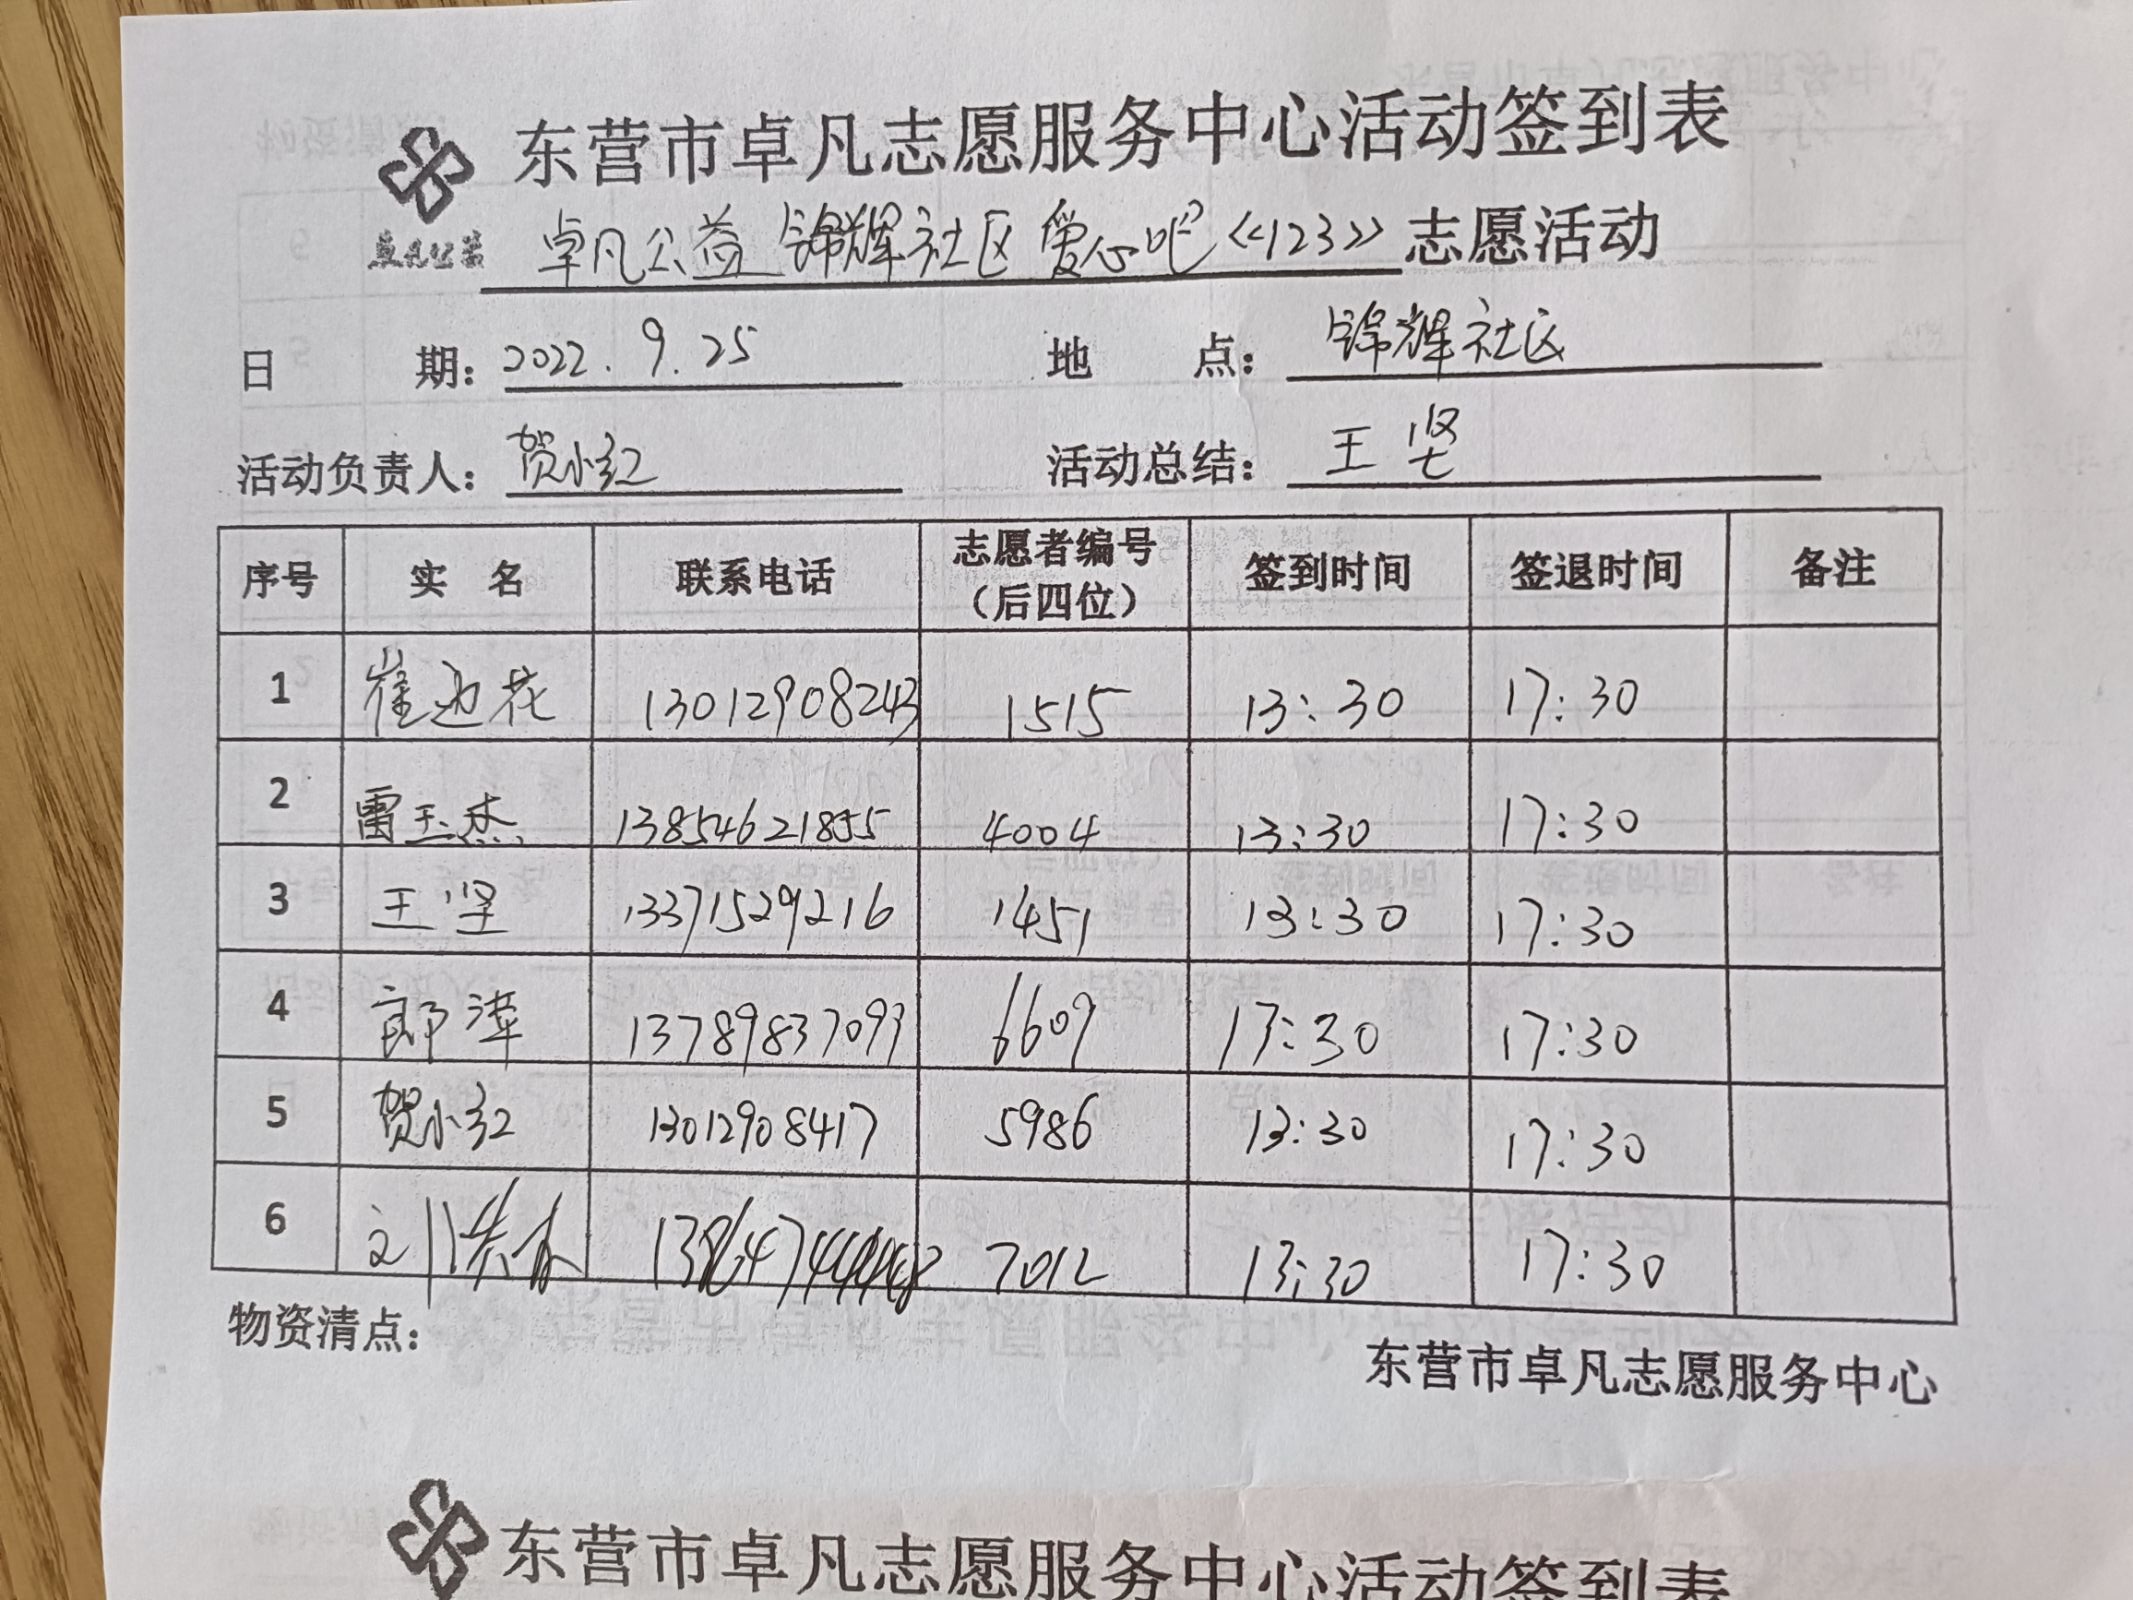 东营市卓凡志愿服务中心活动签到表
卓凡公益
卓凡公益 锦辉社区 爱心吧《123》志愿活动
日 期: 2022.9.25 地 点: 锦辉社区
活动负责人: 贺小红 活动总结: 王坚
序号 实 名 联系电话 志愿者编号（后四位） 签到时间 签退时间 备注
1 崔迎花 13012908243 1515 13:30 17:30
2 雷玉杰 13854621855 4004 13:30 17:30
3 王坚 13371529216 1451 13:30 17:30
4 郎萍 13789837093 6609 13:30 17:30
5 贺小红 13012908417 5986 13:30 17:30
6 7012 13:30 17:30
物资清点:
东营市卓凡志愿服务中心
东营市卓凡志愿服务中心活动签到表